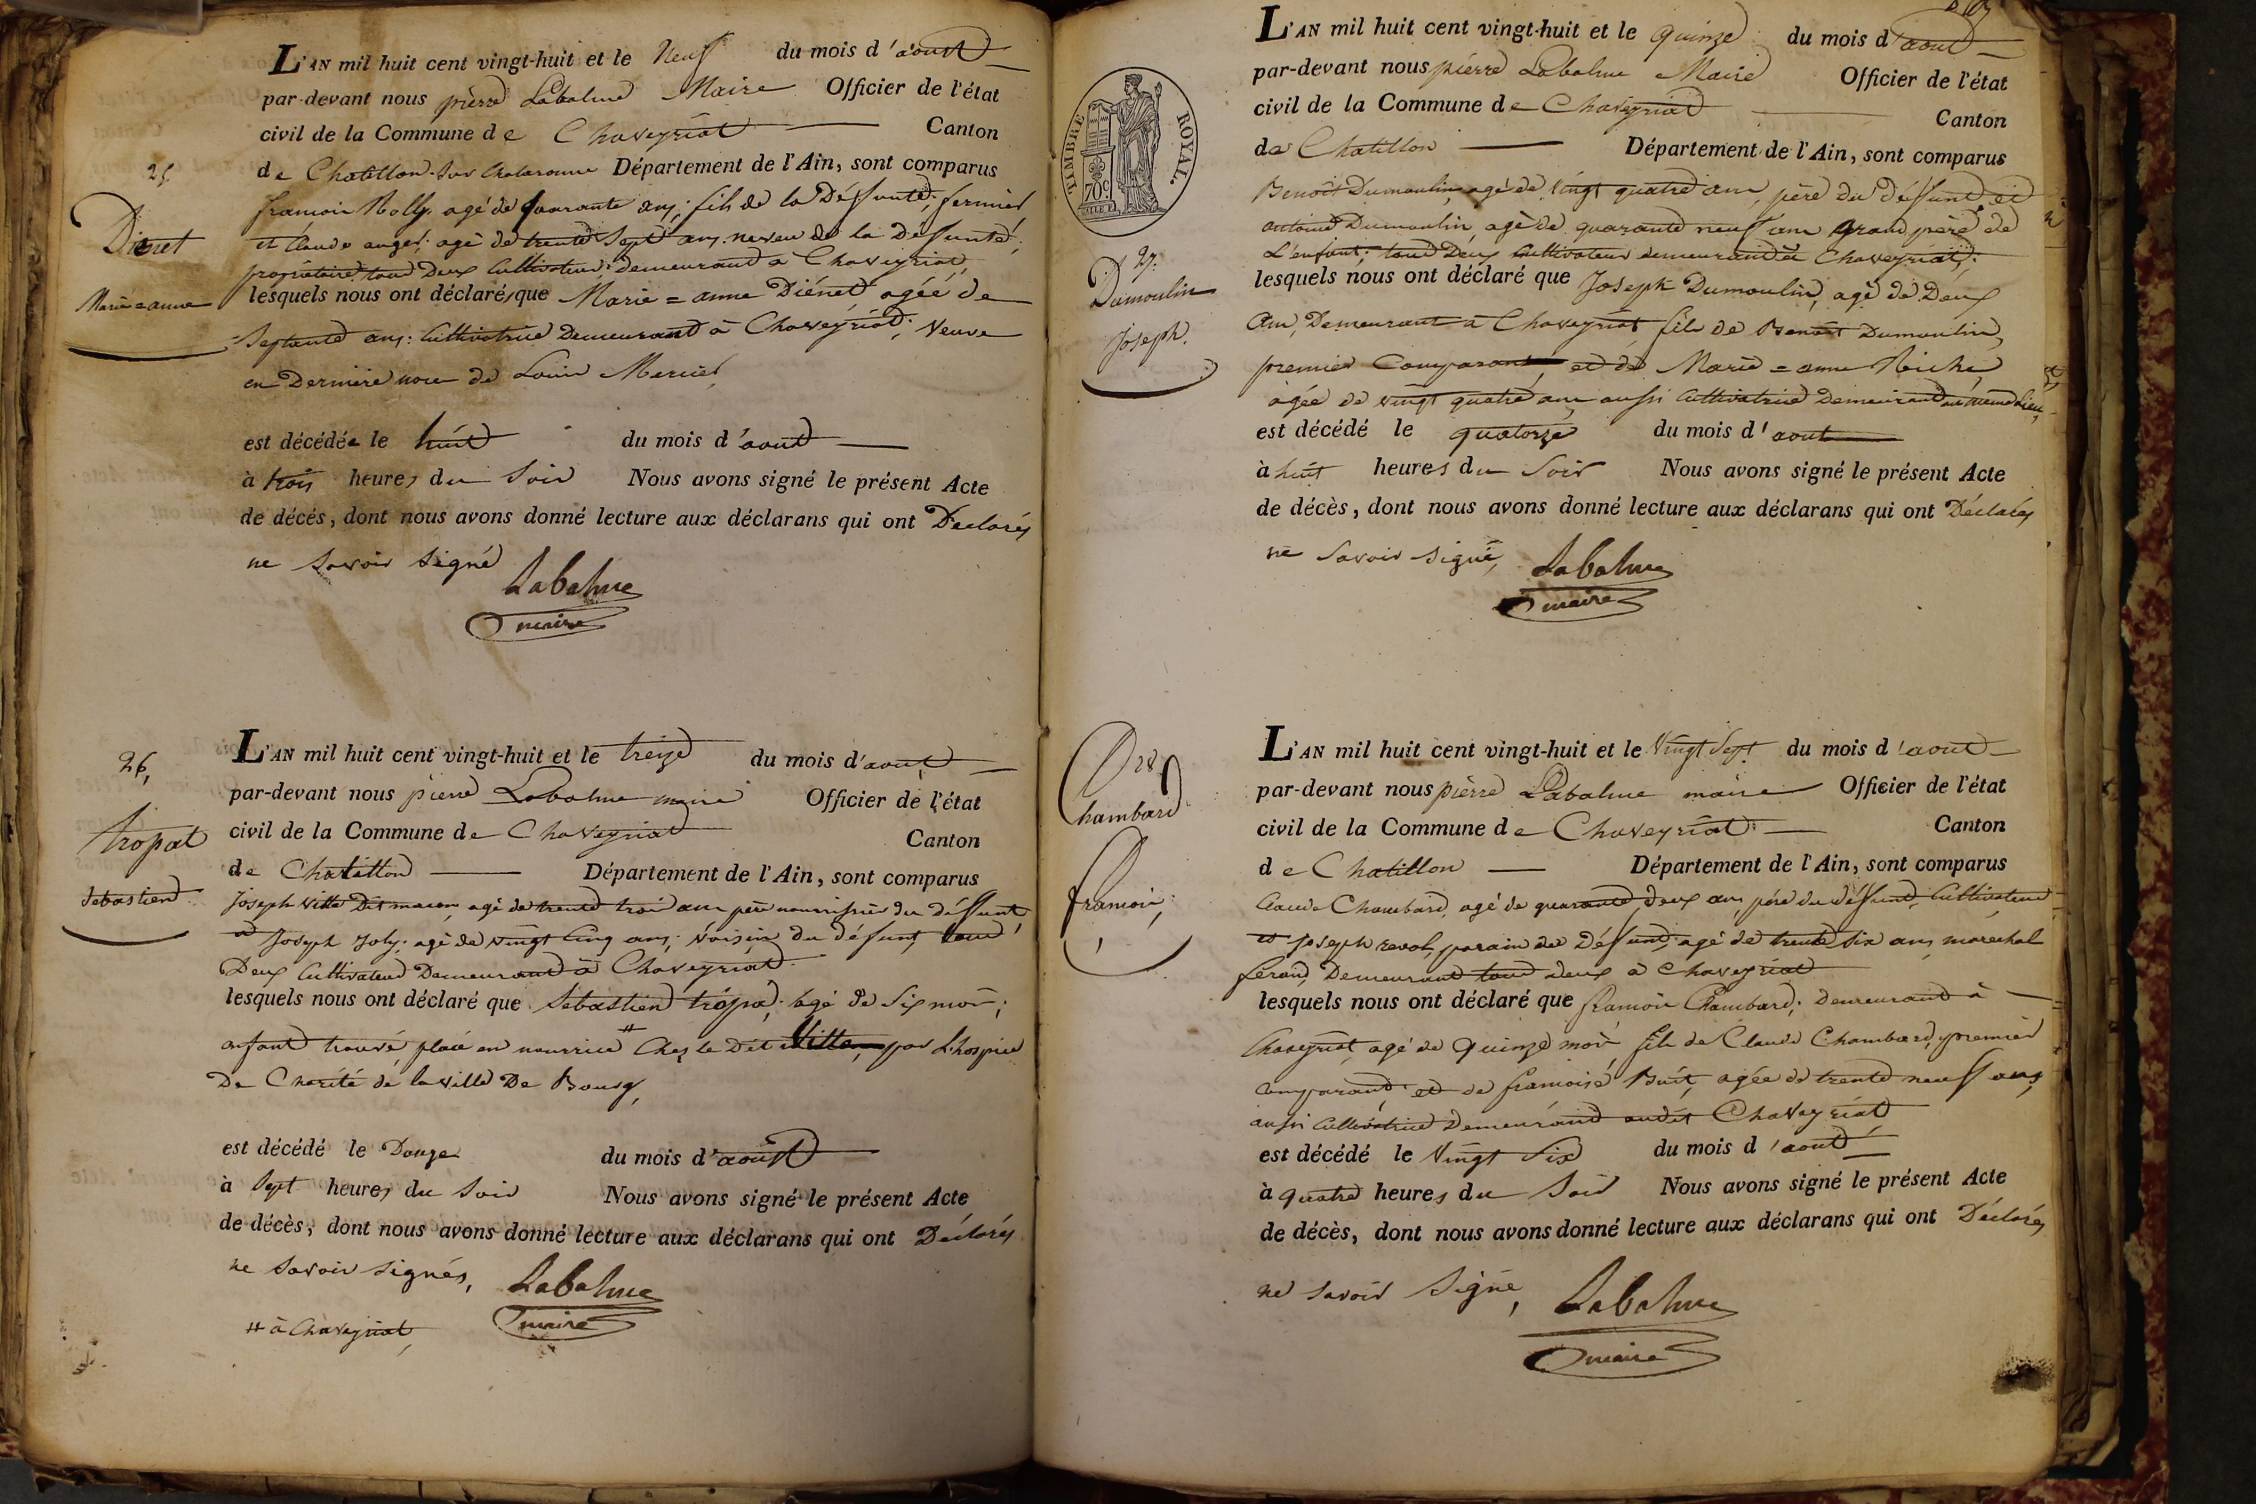 L'AN mil huit cent vingt-huit et le Neuf du mois d'aoust
par-devant nous pièrre Labalme Maire Officier de l'état
civil de la Commune de Chaveyriat Canton
de Chatillon-sur Chalaronne Département de l'Ain, sont comparus
25.
Diénet
Marie=anne
françois Rolly agé de quarante ans, fils de la Déffunte, fermier
et Claude auger agé de trente sept ans neveu de la Defunte,
propriétaire, tous Deux Cultivateurs demeurant à Chaveyriat,
lesquels nous ont déclaré, que Marie=anne Diénet agée de
Septante ans: Cultivatrice Demeurant à Chaveyriat, Veuve
en Dernière noce de Louis Mercier
est décédée le huit du mois d'aout
à trois heures du Soir Nous avons signé le présent Acte
de décés, dont nous avons donné lecture aux déclarans qui ont Déclarés
ne savoir signé
Labalme
maire
26,
tropat
Sebastien
L'AN mil huit cent vingt-huit et le treize du mois d'aout
par-devant nous pierre Labalme maire Officier de l'état
civil de la Commune de Chaveyriat Canton
de Chatillon Département de l'Ain, sont comparus
Joseph Vitte Dit macon, agé de trente trois ans père nourrissier du Déffunt,
et Joseph Joly. agé de vingt Cinq ans, voisin du défunt tous
Deux Cultivateurs Demeurant à Chaveyriat
lesquels nous ont déclaré que Sebastien tropa, agé de Six mois;
enfant trouvé, placé en nourrice # Chez le Dit Vitte, par L'hospice
De Charité de la ville De Bourg,
est décédé le Douze du mois d'aoust
à Sept heures du Soir Nous avons signé le présent Acte
de décès, dont nous avons donné lecture aux déclarans qui ont Déclarés
ne savoir signés,
Labalme
maire
# à Chaveyriat,
L'AN mil huit cent vingt-huit et le quinze du mois d'aout
par-devant nous pièrre Labalme Maire Officier de l'état
civil de la Commune de Chaveyriat Canton
de Chatillon Département de l'Ain, sont comparus
TIMBRE ROYAL.
70 c
27.
Dumoulin
Joseph.
Benoit Dumoulin, agé de vingt quatre ans, père du déffunt, et
antoine Dumoulin agé de quarante neuf ans grand père de
L'enfant, tous Deux Cultivateurs demeurand à Chaveyriat,
lesquels nous ont déclaré que Joseph Dumoulin, agé de Deux
Ans, Demeurant à Chaveyriat fils de Benoit Dumoulin,
premier Comparant, et de Marie=anne Niche,
agée de vingt quatre ans aussi Cultivatrice Demeurand au même lieu,
est décédé le quatorze du mois d'aout
à huit heures du Soir Nous avons signé le présent Acte
de décès, dont nous avons donné lecture aux déclarans qui ont Déclarés
ne savoir signé,
Labalme
maire
28
Chambard
françois,
L'AN mil huit cent vingt-huit et le vingt Sept du mois d'aout
par-devant nous pièrre Labalme maire Officier de l'état
civil de la Commune de Chaveyriat Canton
de Chatillon Département de l'Ain, sont comparus
Claude Chambard, agé de quarante deux ans, père du déffunt, Cultivateur
et Joseph revol, parain du Déffunt agé de trente six ans, marechal
ferand, Demeurant tous deux à Chaveyriat
lesquels nous ont déclaré que françois Chambard, demeurant à
Chaveyriat, agé de Quinze mois, fils de Claude Chambard, premier
comparant, et de françoise Buit, agée de trente neuf ans,
aussi Cultivatrice Demeurand audit Chaveyriat
est décédé le Vingt Six du mois d'aout
à quatre heures du Soir Nous avons signé le présent Acte
de décès, dont nous avons donné lecture aux déclarans qui ont Déclarés
ne savoir Signé,
Labalme
maire